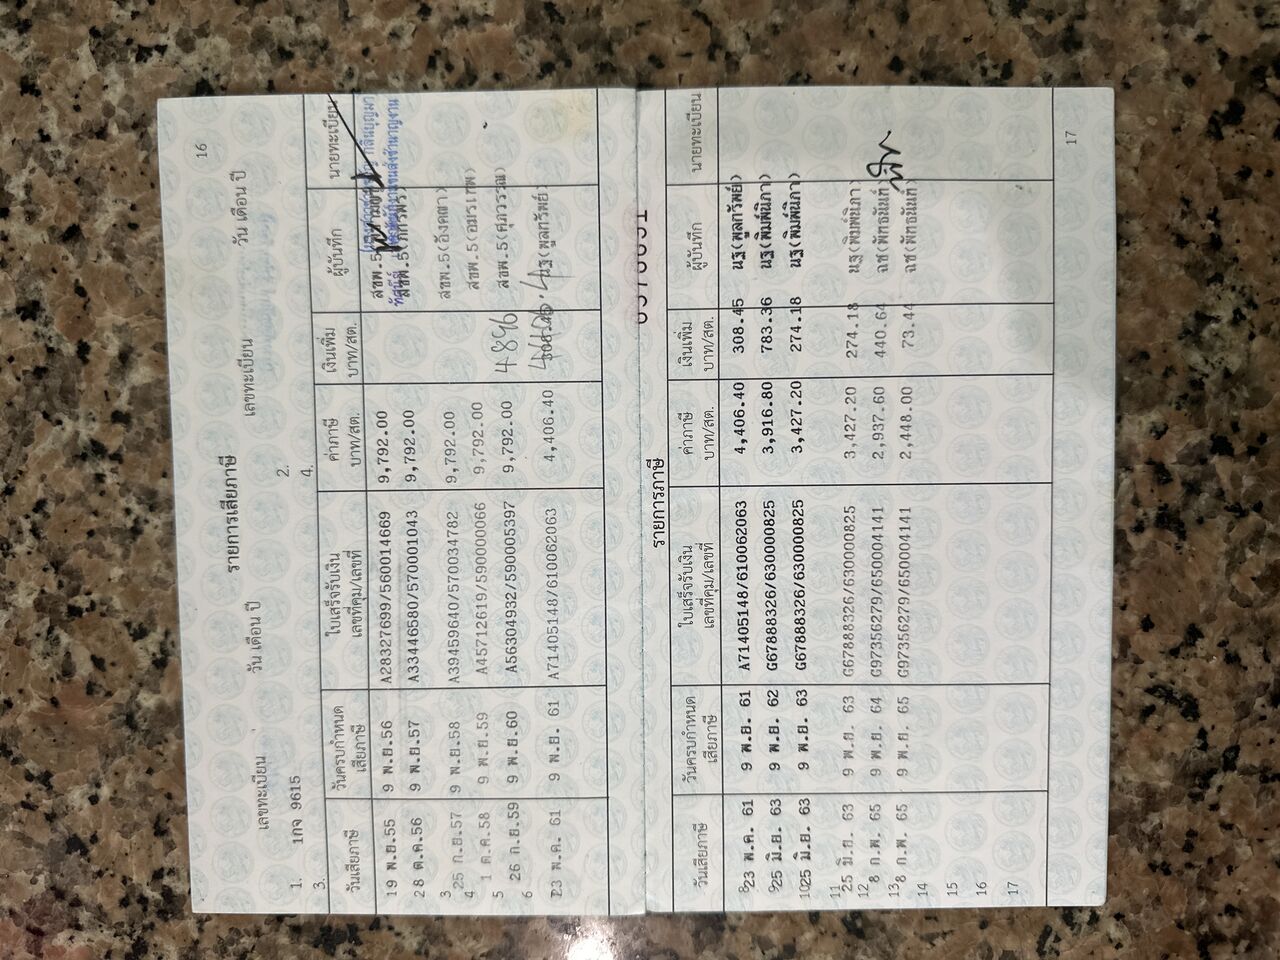 16
รายการเสียภาษี
เลขทะเบียน วัน เดือน ปี เลขทะเบียน วัน เดือน ปี
1. 1กจ 9615 2.
3. 4.
วันเสียภาษี วันครบกำหนดเสียภาษี ใบเสร็จรับเงิน เลขที่คุม/เลขที่ ค่าภาษี บาท/สต. เงินเพิ่ม บาท/สต. ผู้บันทึก นายทะเบียน
19 พ.ย.55 9 พ.ย.56 A28327699/560014669 9,792.00 สขพ.5
28 ต.ค.56 9 พ.ย.57 A33446580/570001043 9,792.00 สขพ.5
3 25 ก.ย.57 9 พ.ย.58 A39459640/570034782 9,792.00 สขพ.5(อังคณา)
4 1 ต.ค.58 9 พ.ย.59 A45712619/590000066 9,792.00 สขพ.5(อมรเทพ)
5 26 ก.ย.59 9 พ.ย.60 A56304932/590005397 9,792.00 4896 สขพ.5(ศุภวรรณ)
6 23 พ.ค. 61 9 พ.ย. 61 A71405148/610062063 4,406.40 นฐ(พูลทรัพย์)
รายการภาษี
วันเสียภาษี วันครบกำหนดเสียภาษี ใบเสร็จรับเงิน เลขที่คุม/เลขที่ ค่าภาษี บาท/สต. เงินเพิ่ม บาท/สต. ผู้บันทึก นายทะเบียน
8 23 พ.ค. 61 9 พ.ย. 61 A71405148/610062063 4,406.40 308.45 นฐ(พูลทรัพย์)
9 25 มิ.ย. 63 9 พ.ย. 62 G67888326/630000825 3,916.80 783.36 นฐ(พิมพ์นิภา)
10 25 มิ.ย. 63 9 พ.ย. 63 G67888326/630000825 3,427.20 274.18 นฐ(พิมพ์นิภา)
11 25 มิ.ย. 63 9 พ.ย. 63 G67888326/630000825 3,427.20 274.18 นฐ(พิมพ์นิภา)
12 8 ก.พ. 65 9 พ.ย. 64 G97356279/650004141 2,937.60 440.64 ฉช(พิทธนันท์)
13 8 ก.พ. 65 9 พ.ย. 65 G97356279/650004141 2,448.00 73.44 ฉช(พิทธนันท์)
14
15
16
17
17